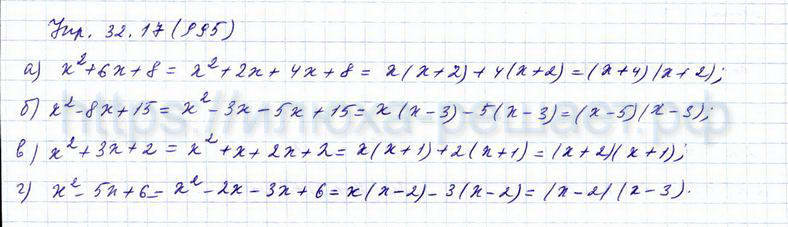 Упр. 32.17 (995)
а) x²+6x+8 = x²+2x+4x+8 = x(x+2)+4(x+2)=(x+4)(x+2);
б) x²-8x+15= x²-3x-5x+15= x(x-3)-5(x-3)=(x-5)(x-3);
в) x²+3x+2 = x²+x+2x+2= x(x+1)+2(x+1)=(x+2)(x+1);
г) x²-5x+6= x²-2x-3x+6=x(x-2)-3(x-2)=(x-2)(x-3).
https://илюха-решает.рф